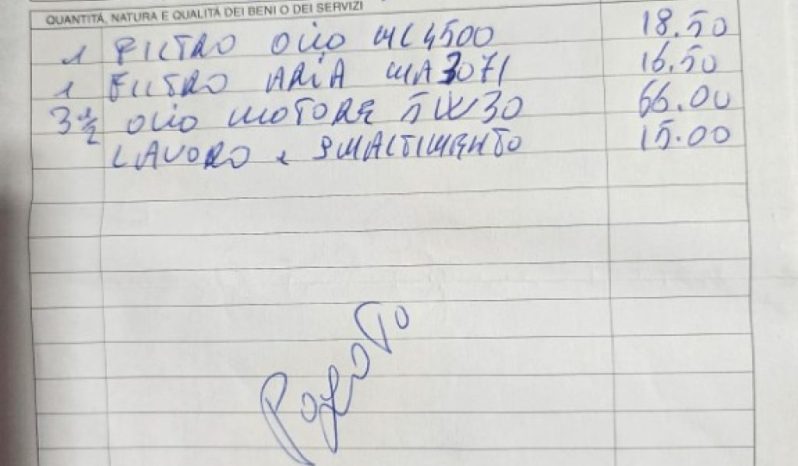 QUANTITÀ, NATURA E QUALITÀ DEI BENI O DEI SERVIZI
1 FILTRO OLIO ML4500 18.50
1 FILTRO ARIA MA3071 16.50
3 1/2 OLIO MOTORE 5W30 66.00
LAVORO e SMALTIMENTO 15.00
Pagato